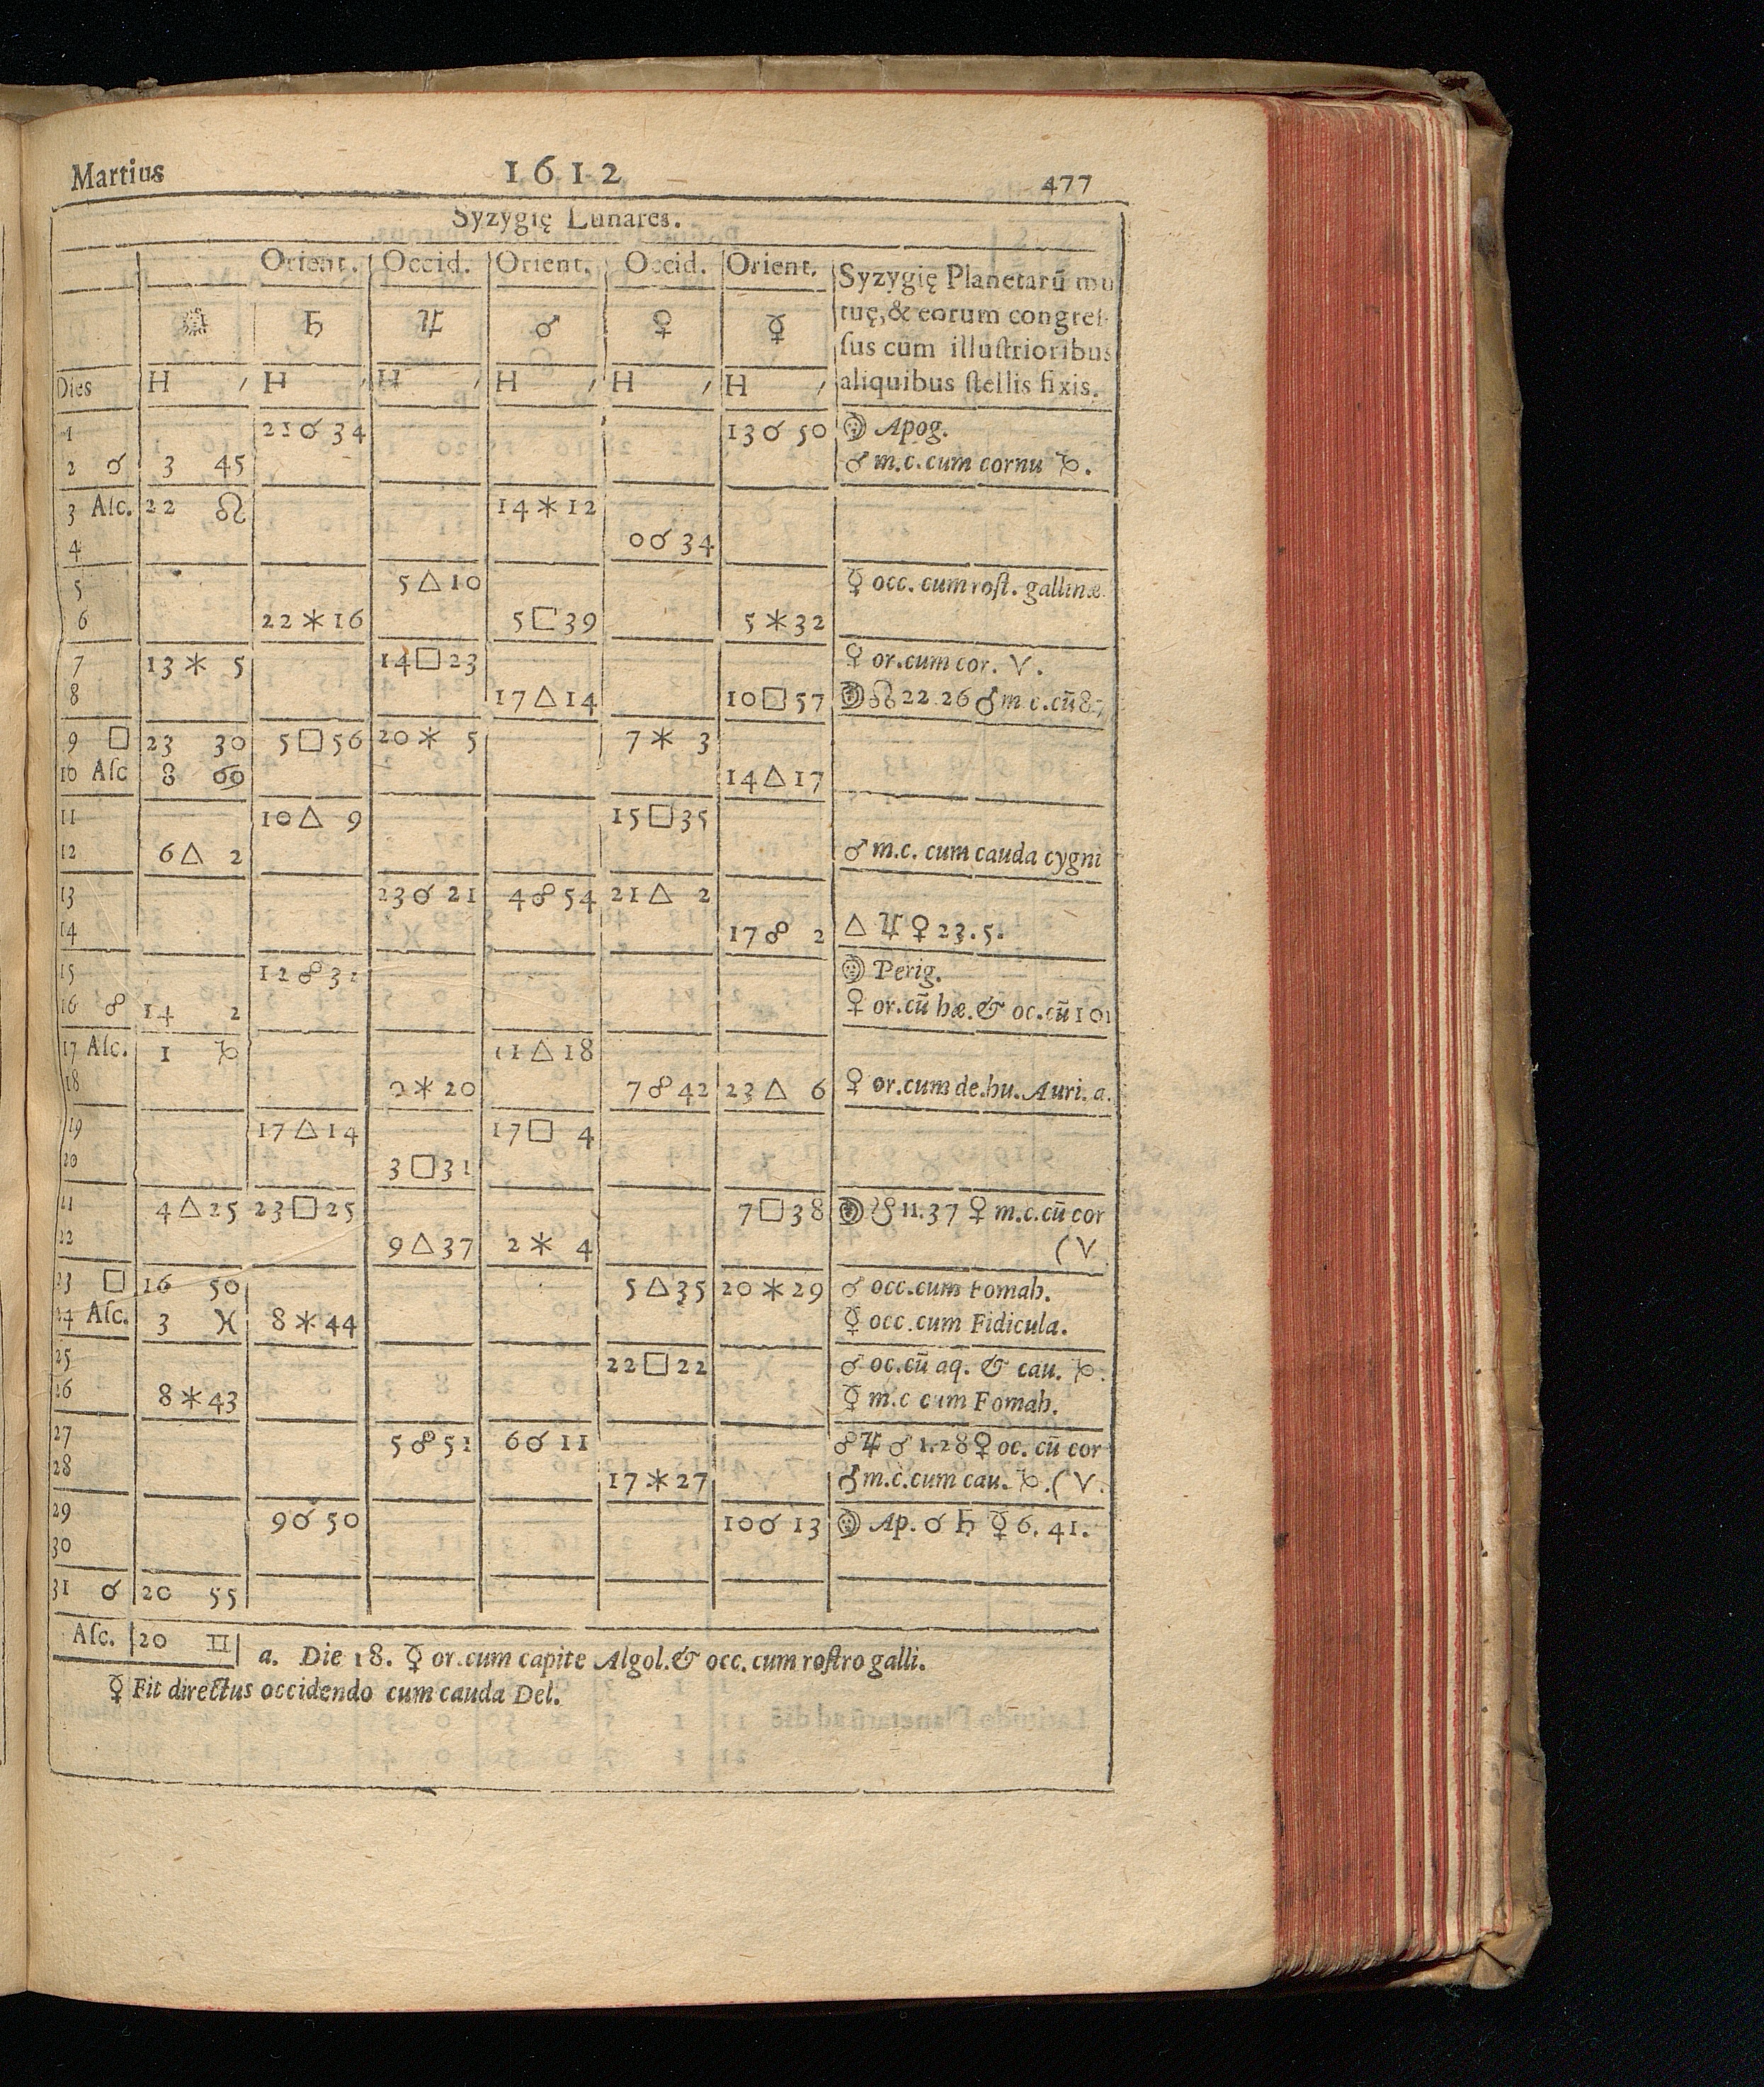 Martius 1612 477
Syzygię Lunares.
Orient. Occid. Orient. Occid. Orient. Syzygię Planetarū mu
☉ ♄ ♃ ♂ ♀ ☿ tuę, & eorum congres-
ſus cum illuſtrioribus
Dies H ′ H ′ H ′ H ′ H ′ H ′ aliquibus ſtellis fixis.
1 21 ☌ 34 13 ☌ 50 ☽ Apog.
2 ☌ 3 45 ♂ m.c. cum cornu ♑.
3 Aſc. 22 ♌ 14 ⚹ 12
4 0 ☌ 34
5 5 △ 10 ☿ occ. cum roſt. gallinæ
6 22 ⚹ 16 5 □ 39 5 ⚹ 32
7 13 ⚹ 5 14 □ 23 ♀ or. cum cor. ♈.
8 17 △ 14 10 □ 57 ☽ ☊ 22 26 ♂ m c. cū
9 □ 23 30 5 □ 56 20 ⚹ 5 7 ⚹ 3
10 Aſc 8 ♋ 14 △ 17
11 10 △ 9 15 □ 35
12 6 △ 2 ♂ m.c. cum cauda cygni
13 23 ☌ 21 4 ☍ 54 21 △ 2
14 17 ☍ 2 △ ♃ ♀ 23.5.
15 12 ☍ ☽ Perig.
16 ☍ 14 2 ♀ or. cū hæ. & oc. cū
17 Aſc. 1 ♑ 11 △ 18
18 2 ⚹ 20 7 ☍ 42 23 △ 6 ♀ or. cum de. hu. Auri. a.
19 17 △ 14 17 □ 4
20 3 □ 31
21 4 △ 25 23 □ 25 7 □ 38 ☽ ☋ 11.37 ♀ m.c. cū cor
22 9 △ 37 2 ⚹ 4 (♈
23 □ 16 50 5 △ 35 20 ⚹ 29 ♂ occ. cum Fomah.
24 Aſc. 3 ♓ 8 ⚹ 44 ☿ occ. cum Fidicula.
25 22 □ 22 ♂ oc. cū aq. & cau. ♑.
26 8 ⚹ 43 ☿ m.c cum Fomah.
27 5 ☍ 51 6 ☌ 11 ☍ ♃ ♂ 1.28 ♀ oc. cū cor
28 17 ⚹ 27 ♂ m.c. cum cau. ♑. (♈.
29 9 ☌ 50 10 ☌ 13 ☽ Ap. ☌ ♄ ☿ 6. 41.
30
31 ☌ 20 55
Aſc. 20 ♊ a. Die 18. ☿ or. cum capite Algol. & occ. cum roſtro galli.
☿ Fit directus occidendo cum cauda Del.